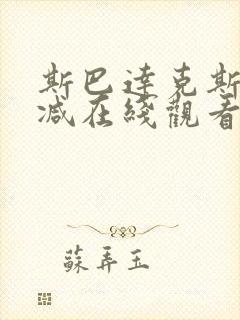 斯巴達克斯
減在綫觀看
蘇弄玉